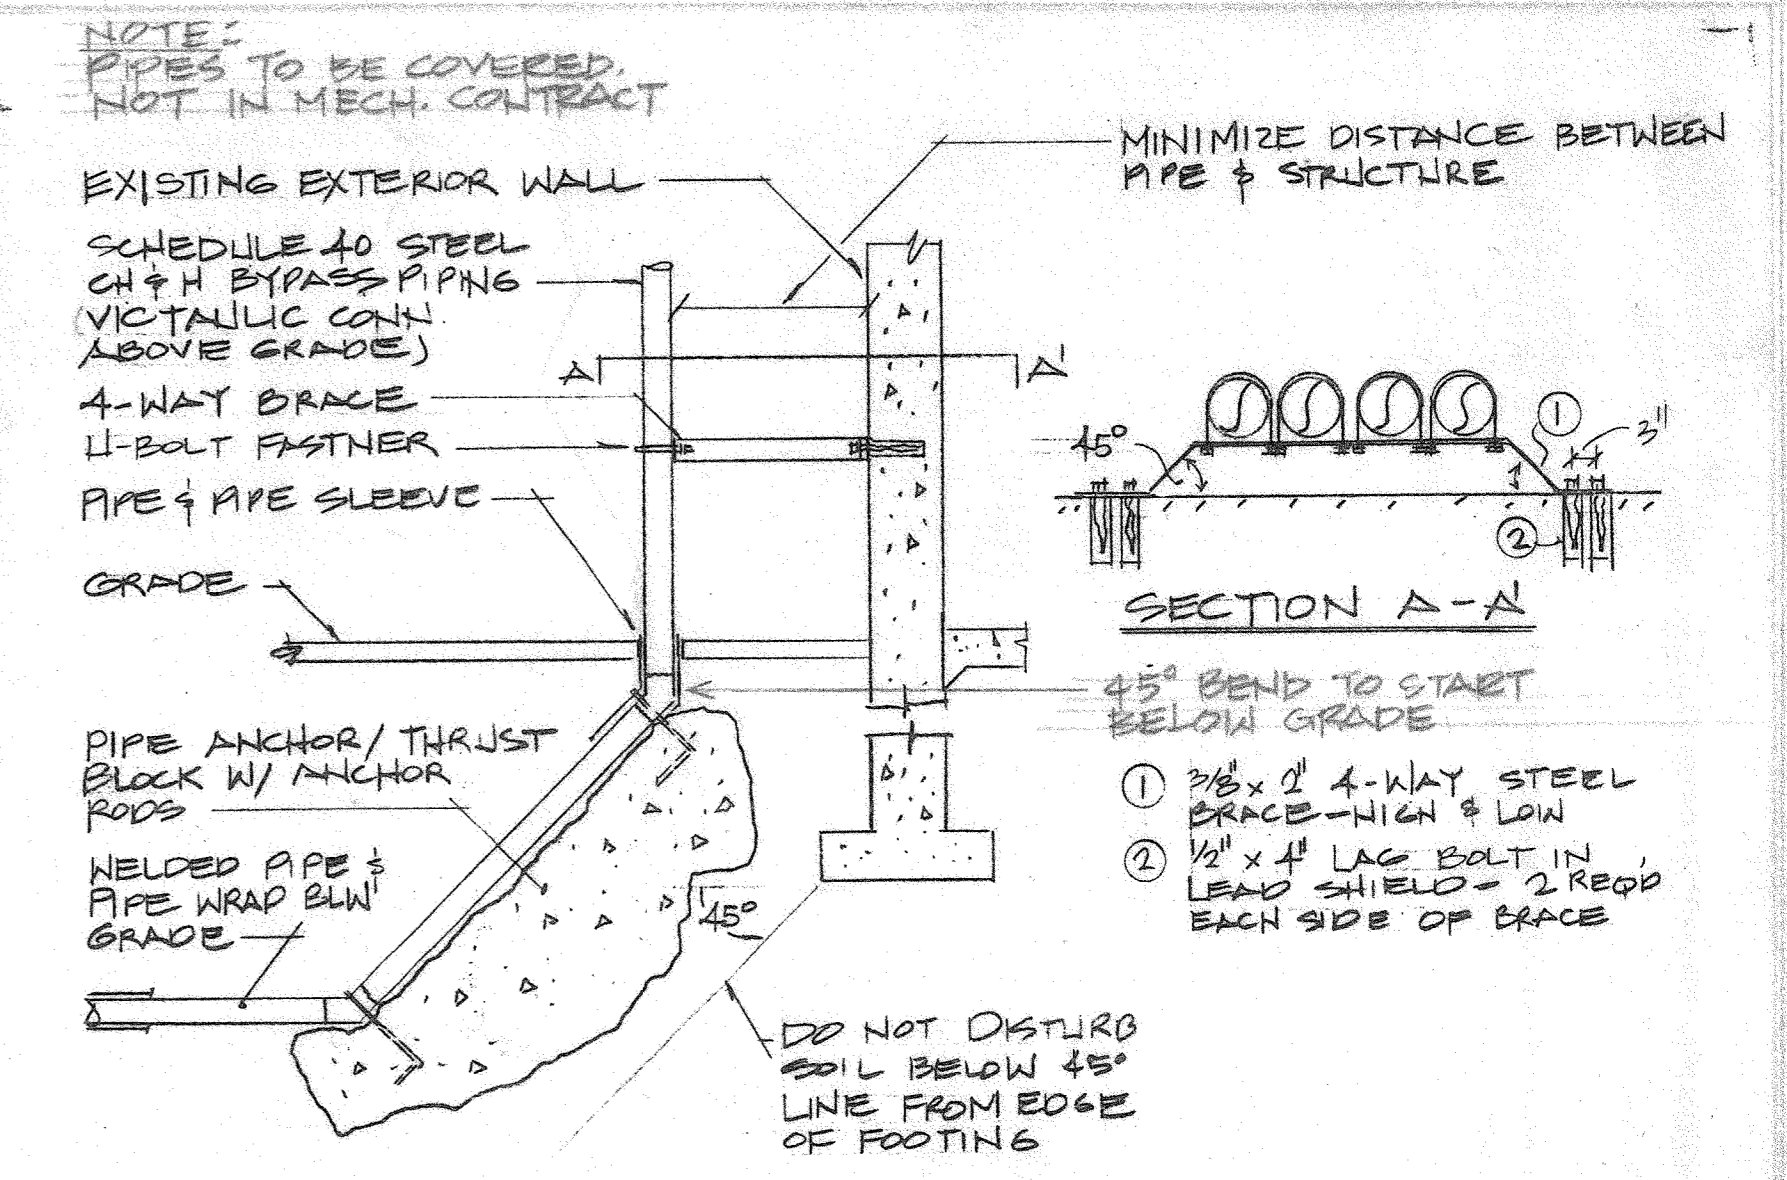 NOTE:
PIPES TO BE COVERED.
NOT IN MECH. CONTRACT
EXISTING EXTERIOR WALL
SCHEDULE 40 STEEL
CH & H BYPASS PIPING
(VICTAULIC CONN.
ABOVE GRADE)
4-WAY BRACE
U-BOLT FASTNER
PIPE & PIPE SLEEVE
GRADE
PIPE ANCHOR/THRUST
BLOCK W/ ANCHOR
RODS
WELDED PIPE &
PIPE WRAP BLW'
GRADE
MINIMIZE DISTANCE BETWEEN
PIPE & STRUCTURE
A
A'
45°
1
3"
2
SECTION A-A'
45° BEND TO START
BELOW GRADE
1 3/8" x 2" 4-WAY STEEL
BRACE-HIGH & LOW
2 1/2" x 4" LAG BOLT IN
LEAD SHIELD- 2 REQ'D
EACH SIDE OF BRACE
45°
DO NOT DISTURB
SOIL BELOW 45°
LINE FROM EDGE
OF FOOTING